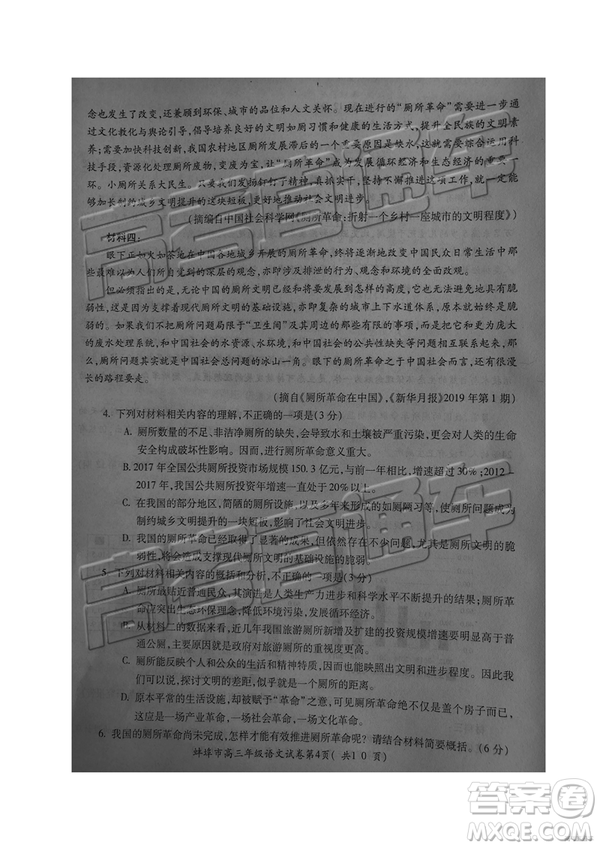 念也发生了改变,还兼顾到环保、城市的品位和人文关怀。现在进行的“厕所革命”需要进一步通
过文化教化与舆论引导,倡导培育良好的文明如厕习惯和健康的生活方式,提升全民族的文明
素养;需要加快制度创新,我国农村地区厕所发展滞后的一个重要原因是缺水,需要综合运用科
技手段,资源化处理厕所废物,变废为宝,让“厕所革命”成为发展循环经济和生态经济的重要环
节。小厕所关系大民生。我们要发扬钉钉子精神,一件事情接着一件事情办,一年接着一年干,
持续深化的城乡文明提升的质量,更好地推动社会文明进步。
(摘编自中国社会科学网《厕所革命:折射一个乡村一座城市的文明程度》)
材料四:
眼下正如火如荼地在中国各地城乡开展的厕所革命,必将逐渐地改变中国民众日常生活中
那些难以为人们所自觉到的深层的观念,亦即涉及排泄的行为、观念和环境的全面改变。
但必须指出的是,无论中国的厕所文明已经和将要达到怎样的高度,都不能无视它具有的脆
弱性,这是因为支撑着现代厕所文明的基础设施,亦即复杂的城市上下水道体系,原本始终就是
脆弱的。如果我们将厕所问题局限于“卫生间”及其周边,而不涉及与之相关的更为深远和庞大
的废水处理系统,不涉及中国社会的水资源、水环境和一直以来的公共性缺失等重大问题,那
么,我们把厕所问题甚至就只是中国社会总问题的冰山一角。眼下的厕所革命之于中国社会,还有很漫
长的路程要走。
(摘自《厕所革命在中国》,《新华月报》2019年第1期)
4. 下列对材料相关内容的理解,不正确的一项是(3分)
A. 厕所数量的不足、非洁净厕所的缺失,会导致水和土壤被严重污染,甚至对人类的生命
安全构成破坏性影响。因而,厕所问题至关重要。
B. 2017年全国公共厕所投资市场规模150.3亿元,与前一年相比,增速超过30%;2012—
2017年,我国公共厕所投资增速一直处于20%以上。
C. 在我国的部分地区,简陋的厕所现状,仍旧影响着农民的如厕习惯,使厕所成为影响和
制约城乡文明提升的瓶颈,影响经济发展和社会进步。
D. 我国的厕所革命已经取得了显著的成果,但依然存在严重的问题,尤其是厕所文明的脆
弱性,将会造成支撑现代厕所文明的基础设施的脆弱。
5. 下列对材料相关内容的概括和分析,不正确的一项是(3分)
A. 厕所最贴近普通民众,其演进是人类生产力进步和科学水平不断提升的结果;厕所革命
可以突出生态环保理念,降低环境污染,发展循环经济。
B. 从材料二的数据来看,近几年我国旅游厕所新增及扩建的投资规模增速明显高于普
通公厕,主要原因就是政府对旅游厕所的重视度更高。
C. 厕所能反映个人和公众的生活和精神特质,因而也能映照出文明和进步程度。因此,城
市和乡村文明程度的差距,似乎就是一个厕所的距离。
D. 原本平常的生活设施,却被赋予“革命”的重大意义,是因为其涉及多个方面的变革,
这应是一场产业革命、社会革命,还是一场观念革命。
6. 我国的厕所革命尚未完成,如何才能有效推进厕所革命?请结合材料简要概括。(6分)
蚌埠市高三年级语文试卷第4页(共10页)
高考直通车
高考直通车
答案圈
MXQE.COM